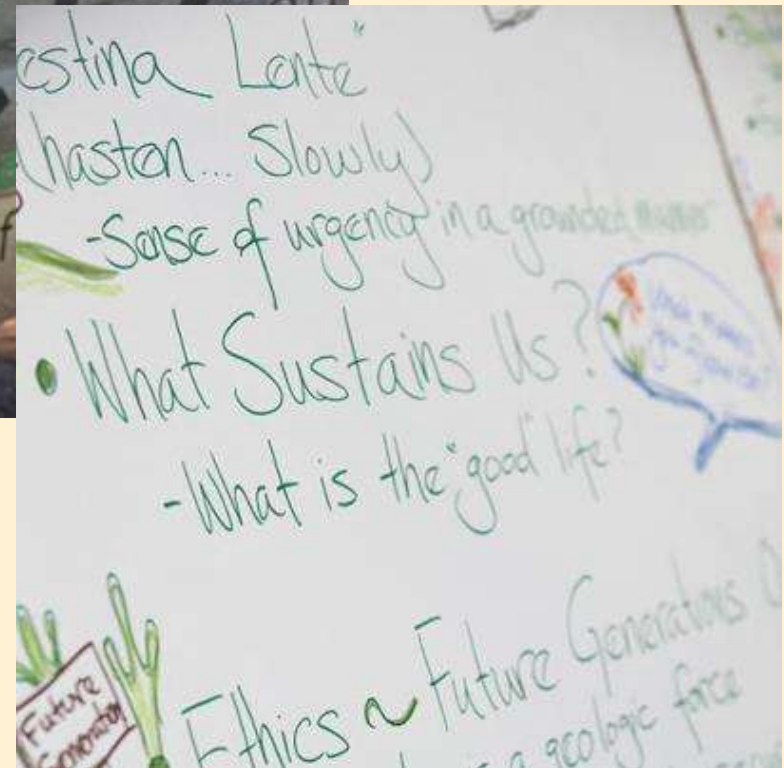 estina Lente"
(hasten... Slowly)
-Sense of urgency in a grounded manner
• What Sustains Us?
-What is the "good" life?
Future
Generation
Ethics ~ Future Generations
is a geologic force